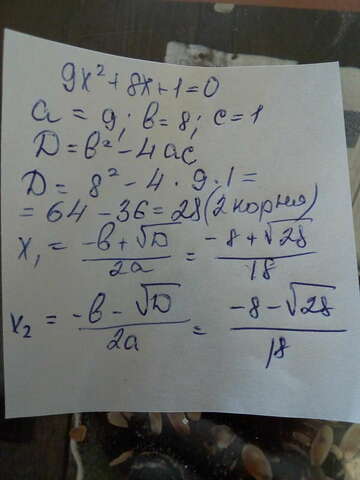 9x² + 8x + 1 = 0
a = 9; b = 8; c = 1
D = b² - 4ac
D = 8² - 4 · 9 · 1 =
= 64 - 36 = 28 (2 корня)
x₁ = (-b + √D)/2a = (-8 + √28)/18
x₂ = (-b - √D)/2a = (-8 - √28)/18